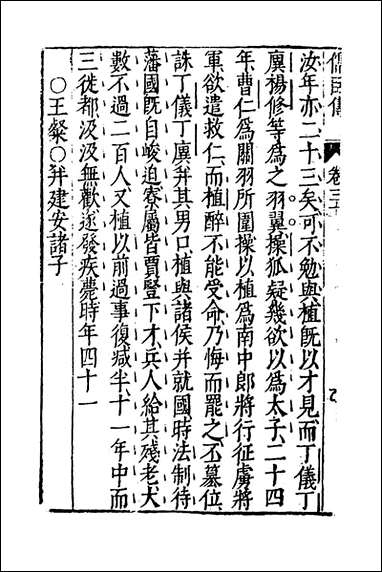 儒臣傳 卷三十
汝年亦二十三矣可不勉與植既以才見而丁儀丁
廙楊修等爲之羽翼操狐疑幾欲以爲太子二十四
年曹仁爲關羽所圍操以植爲南中郎將行征虜將
軍欲遣救仁而植醉不能受命乃悔而罷之丕纂位
誅丁儀丁廙幷其男口植與諸侯并就國時法制待
藩國既自峻迫寮屬皆賈豎下才兵人給其殘老大
數不過二百人又植以前過事復減半十一年中而
三徙都汲汲無歡遂發疾薨時年四十一
〇王粲〇幷建安諸子